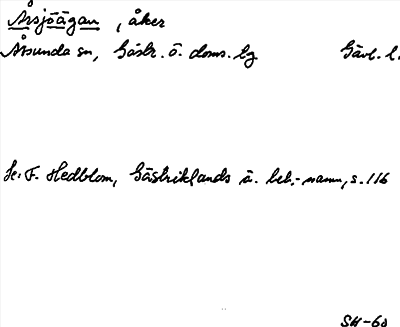 Årsjöägan, åker
Årsunda sn, Gästr. ö. doms. lg Gävl. l.
Se: F. Hedblom, Gästriklands ä. beb.-namn, s. 116
SH-60